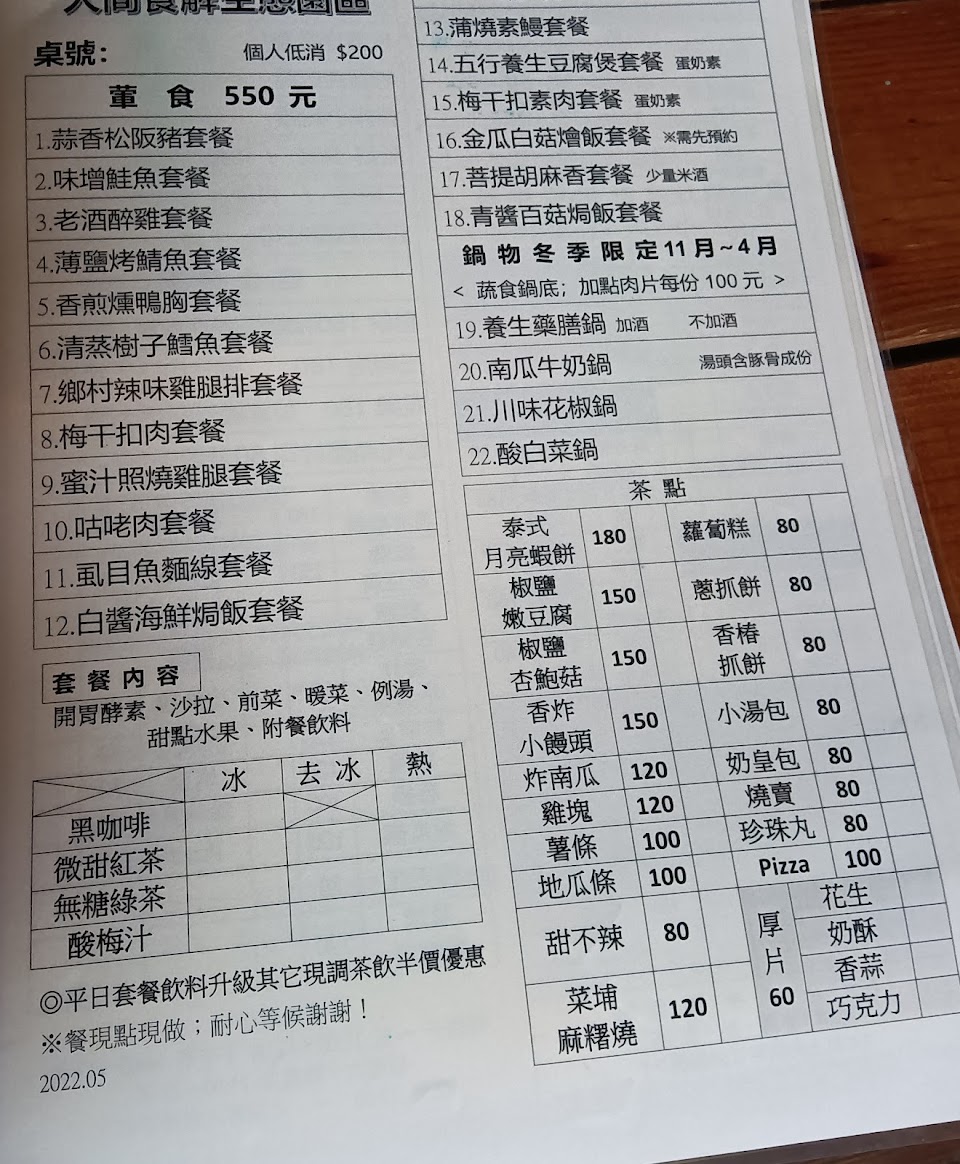 人間食解生態園區
桌號： 個人低消 $200
葷 食 550 元
1.蒜香松阪豬套餐
2.味增鮭魚套餐
3.老酒醉雞套餐
4.薄鹽烤鯖魚套餐
5.香煎燻鴨胸套餐
6.清蒸樹子鱈魚套餐
7.鄉村辣味雞腿排套餐
8.梅干扣肉套餐
9.蜜汁照燒雞腿套餐
10.咕咾肉套餐
11.虱目魚麵線套餐
12.白醬海鮮焗飯套餐
套 餐 內 容
開胃酵素、沙拉、前菜、暖菜、例湯、
甜點水果、附餐飲料
冰 去 冰 熱
黑咖啡
微甜紅茶
無糖綠茶
酸梅汁
◎平日套餐飲料升級其它現調茶飲半價優惠
※餐現點現做；耐心等候謝謝！
2022.05
13.蒲燒素鰻套餐
14.五行養生豆腐煲套餐 蛋奶素
15.梅干扣素肉套餐 蛋奶素
16.金瓜白菇燴飯套餐 ※需先預約
17.菩提胡麻香套餐 少量米酒
18.青醬百菇焗飯套餐
鍋 物 冬 季 限 定 11 月~4 月
< 蔬食鍋底；加點肉片每份 100 元 >
19.養生藥膳鍋 加酒 不加酒
20.南瓜牛奶鍋 湯頭含豚骨成份
21.川味花椒鍋
22.酸白菜鍋
茶 點
泰式
月亮蝦餅 180 蘿蔔糕 80
椒鹽
嫩豆腐 150 蔥抓餅 80
椒鹽
杏鮑菇 150 香椿
抓餅 80
香炸
小饅頭 150 小湯包 80
炸南瓜 120 奶皇包 80
雞塊 120 燒賣 80
薯條 100 珍珠丸 80
地瓜條 100 Pizza 100
甜不辣 80
菜埔
麻糬燒 120
厚
片
60
花生
奶酥
香蒜
巧克力